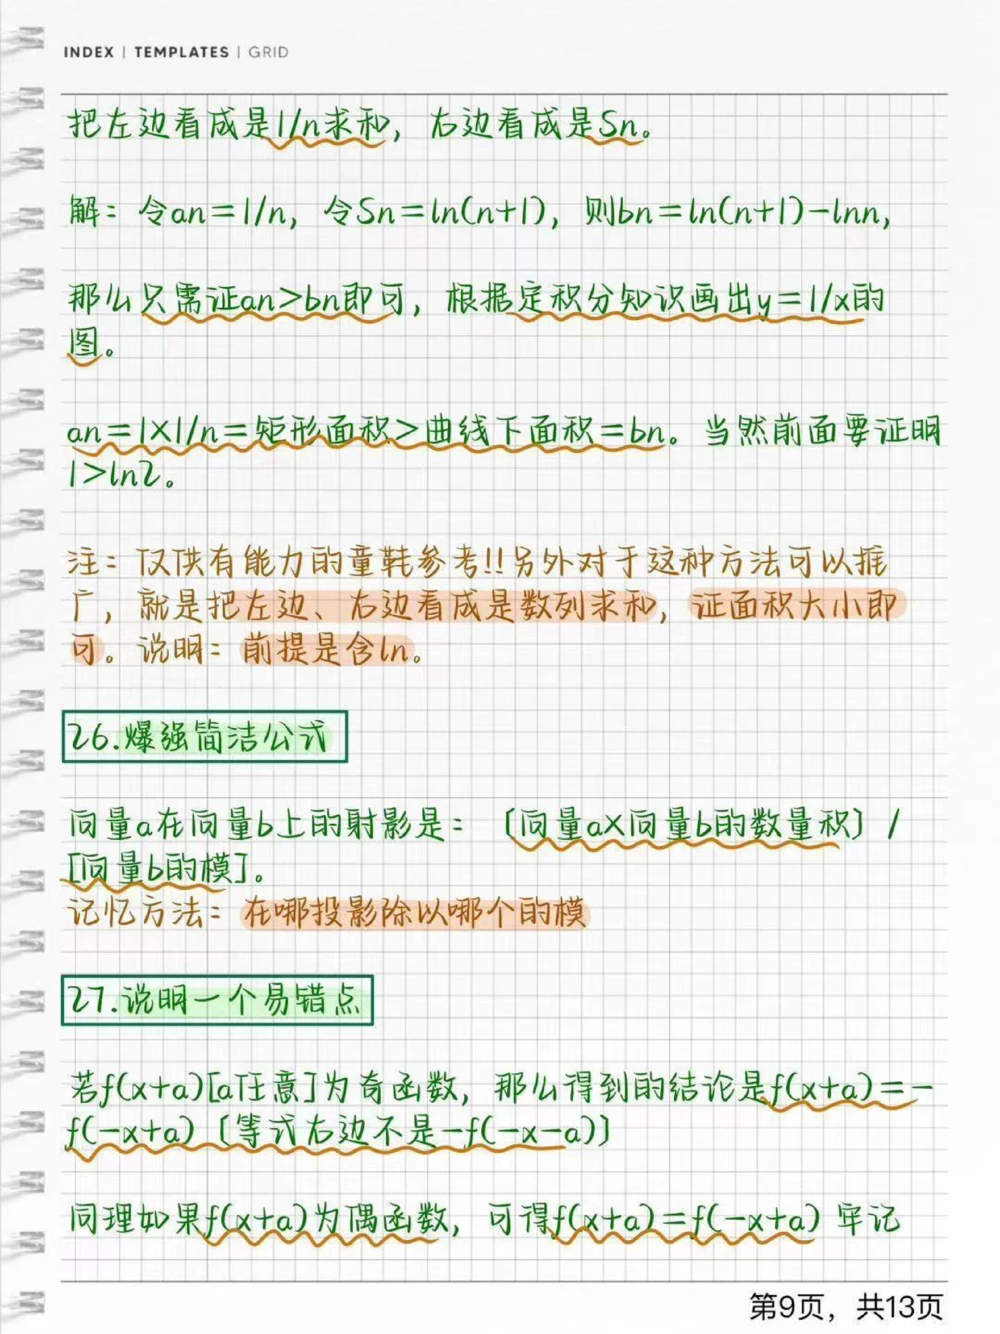 INDEX | TEMPLATES | GRID
把左边看成是1/n求和，右边看成是Sn。
解：令an=1/n，令Sn=ln(n+1)，则bn=ln(n+1)-lnn，
那么只需证an>bn即可，根据定积分知识画出y=1/x的
图。
an=1×1/n=矩形面积>曲线下面积=bn。当然前面要证明
1>ln2。
注：仅供有能力的童鞋参考!!另外对于这种方法可以推
广，就是把左边、右边看成是数列求和，证面积大小即
可。说明：前提是含ln。
26.爆强简洁公式
向量a在向量b上的射影是：〔向量a×向量b的数量积〕/
[向量b的模]。
记忆方法：在哪投影除以哪个的模
27.说明一个易错点
若f(x+a)[a任意]为奇函数，那么得到的结论是f(x+a)=-
f(-x+a)〔等式右边不是-f(-x-a)〕
同理如果f(x+a)为偶函数，可得f(x+a)=f(-x+a) 牢记
第9页，共13页